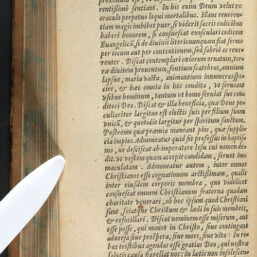 rentissime sentiant. In his enim Deum velut ex
oraculo perpetuo loqui mortalibus. Hanc reueren-
tiam magis imbibet puer, si viderit sacris codicibus
haberi honorem, si consuescat exosculari codicem
Euangelicum,
per iocum aut per contentionem, sed sobriè ac reue-
renter. Discat contemplari cælorum ornatum, ter-
ræ diuitem prouentum, fontium scatebras, amnium
lapsus, maria vasta, animantium innumeras spe-
cies, & hæc omnia in hoc condita, vt seruiant
vsibus hominum, tantum vt homo seruiat suo con-
ditori Deo. Discat & illa beneficia, quæ Deus pe-
culiariter largitus est electis suis per filium suum
vnicũ, & quotidie largitur per spiritum sanctum.
Postremò quæ præmia maneant pios, quæ suppli-
cia impios. Admoneatur quid sit professus in baptis-
mo, ne desciscat ab imperatore Iesu cui nomen de-
dit: vt vestem quam accepit candidam, seruet im-
maculatam. Admoneatur autem, inter omnes
Christianos esse cognationem arctissimam, qualis
inter eiusdem corporis membra, quo videlicet
consuescat omnem Christianum fraterna quadam
charitate venerari, ob hoc ipsum quod Christiani
sint,
& refocillari. Discat neminem esse miserum, aut
esse posse, qui maneat in Christo, siue contingant
aduersa siue prospera, siue mors, siue vita: In re-
bus tristibus agendas esse gratias Deo, qui nostræ